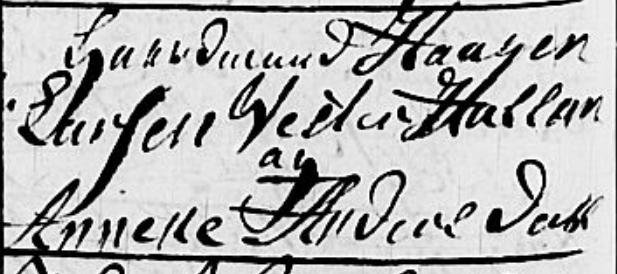 Gaardmand Haagen
Larsen Vester Hallan
av
Anneke Anders Datt